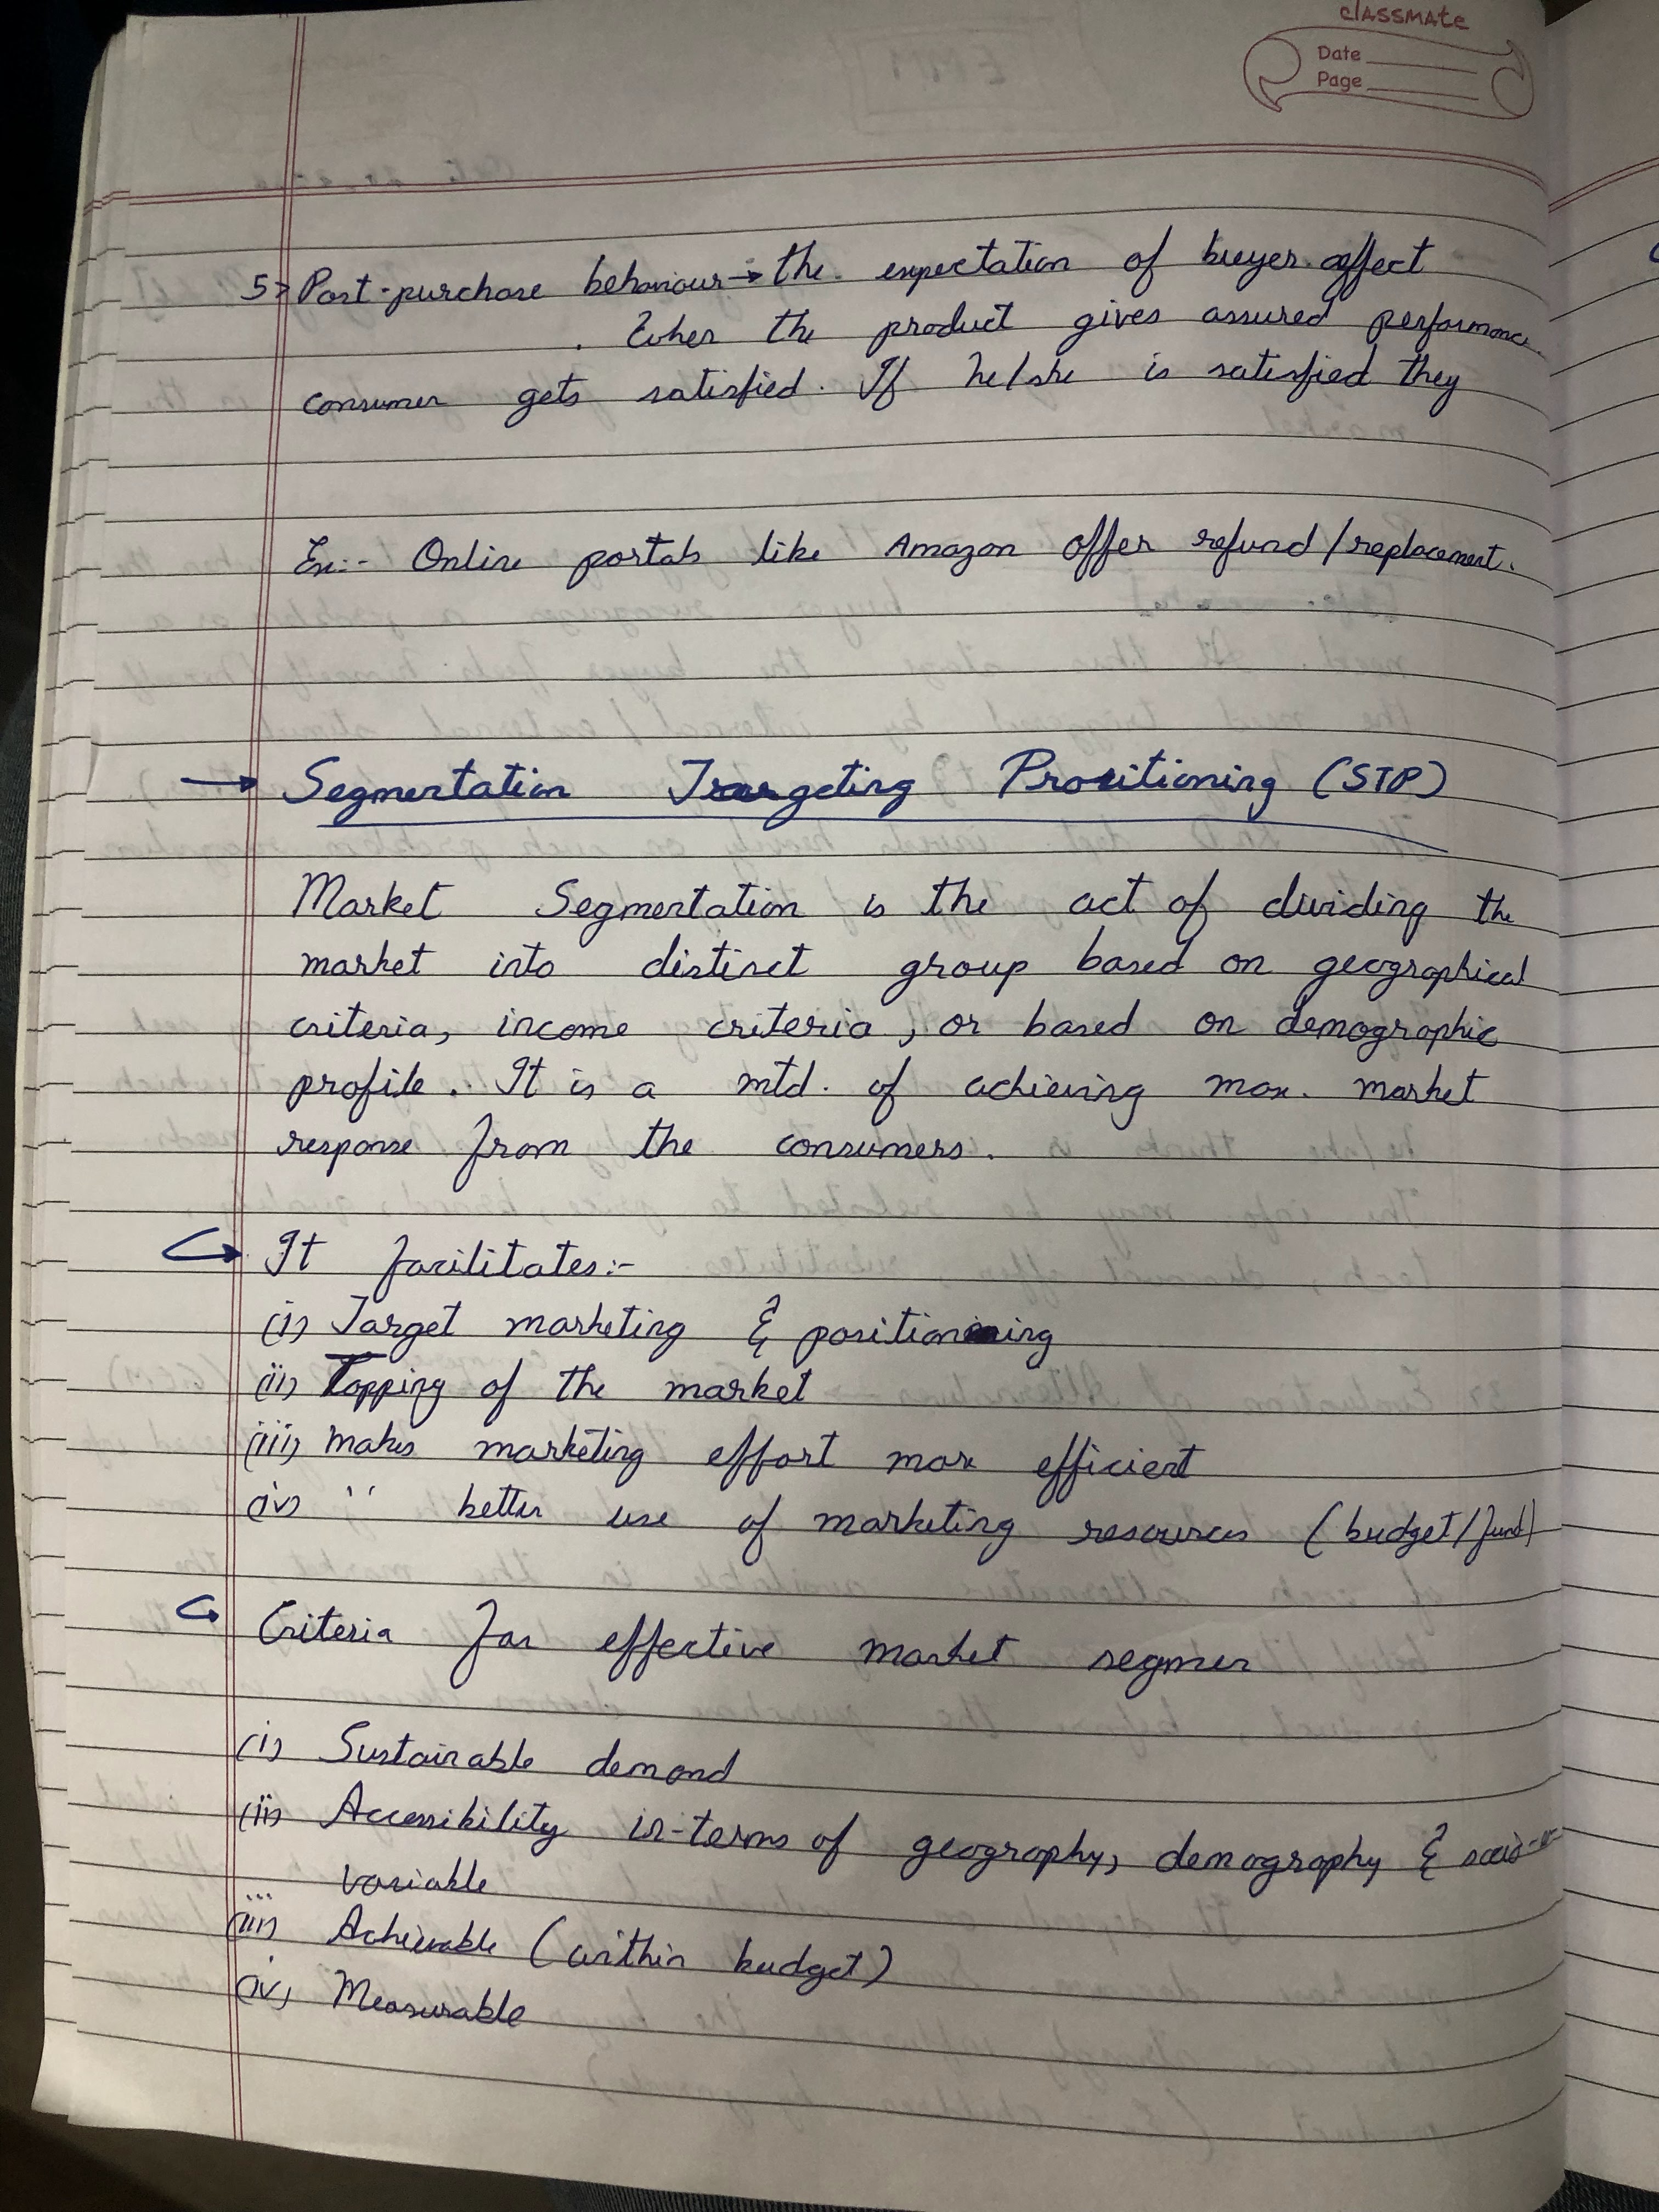 classmate
Date
Page
5> Post-purchase behaviour → the expectation of buyer affect
. When the product gives assured performance
consumer gets satisfied. If he/she is satisfied they
Ex:- Online portals like Amazon offer refund/replacement.
→ Segmentation Targeting Prositioning (STP)
Market Segmentation is the act of dividing the
market into distinct group based on geographical
criteria, income criteria, or based on demographic
profile. It is a mtd. of achieving max. market
response from the consumers.
↪ It facilitates:-
(i) Target marketing & positioning
(ii) Tapping of the market
(iii) Makes marketing effort more efficient
(iv) '' better use of marketing resources (budget/fund)
↪ Criteria for effective market segmen
(i) Sustainable demand
(ii) Accessibility in-terms of geography, demography &
variable
(iii) Achievable (within budget)
(iv) Measurable